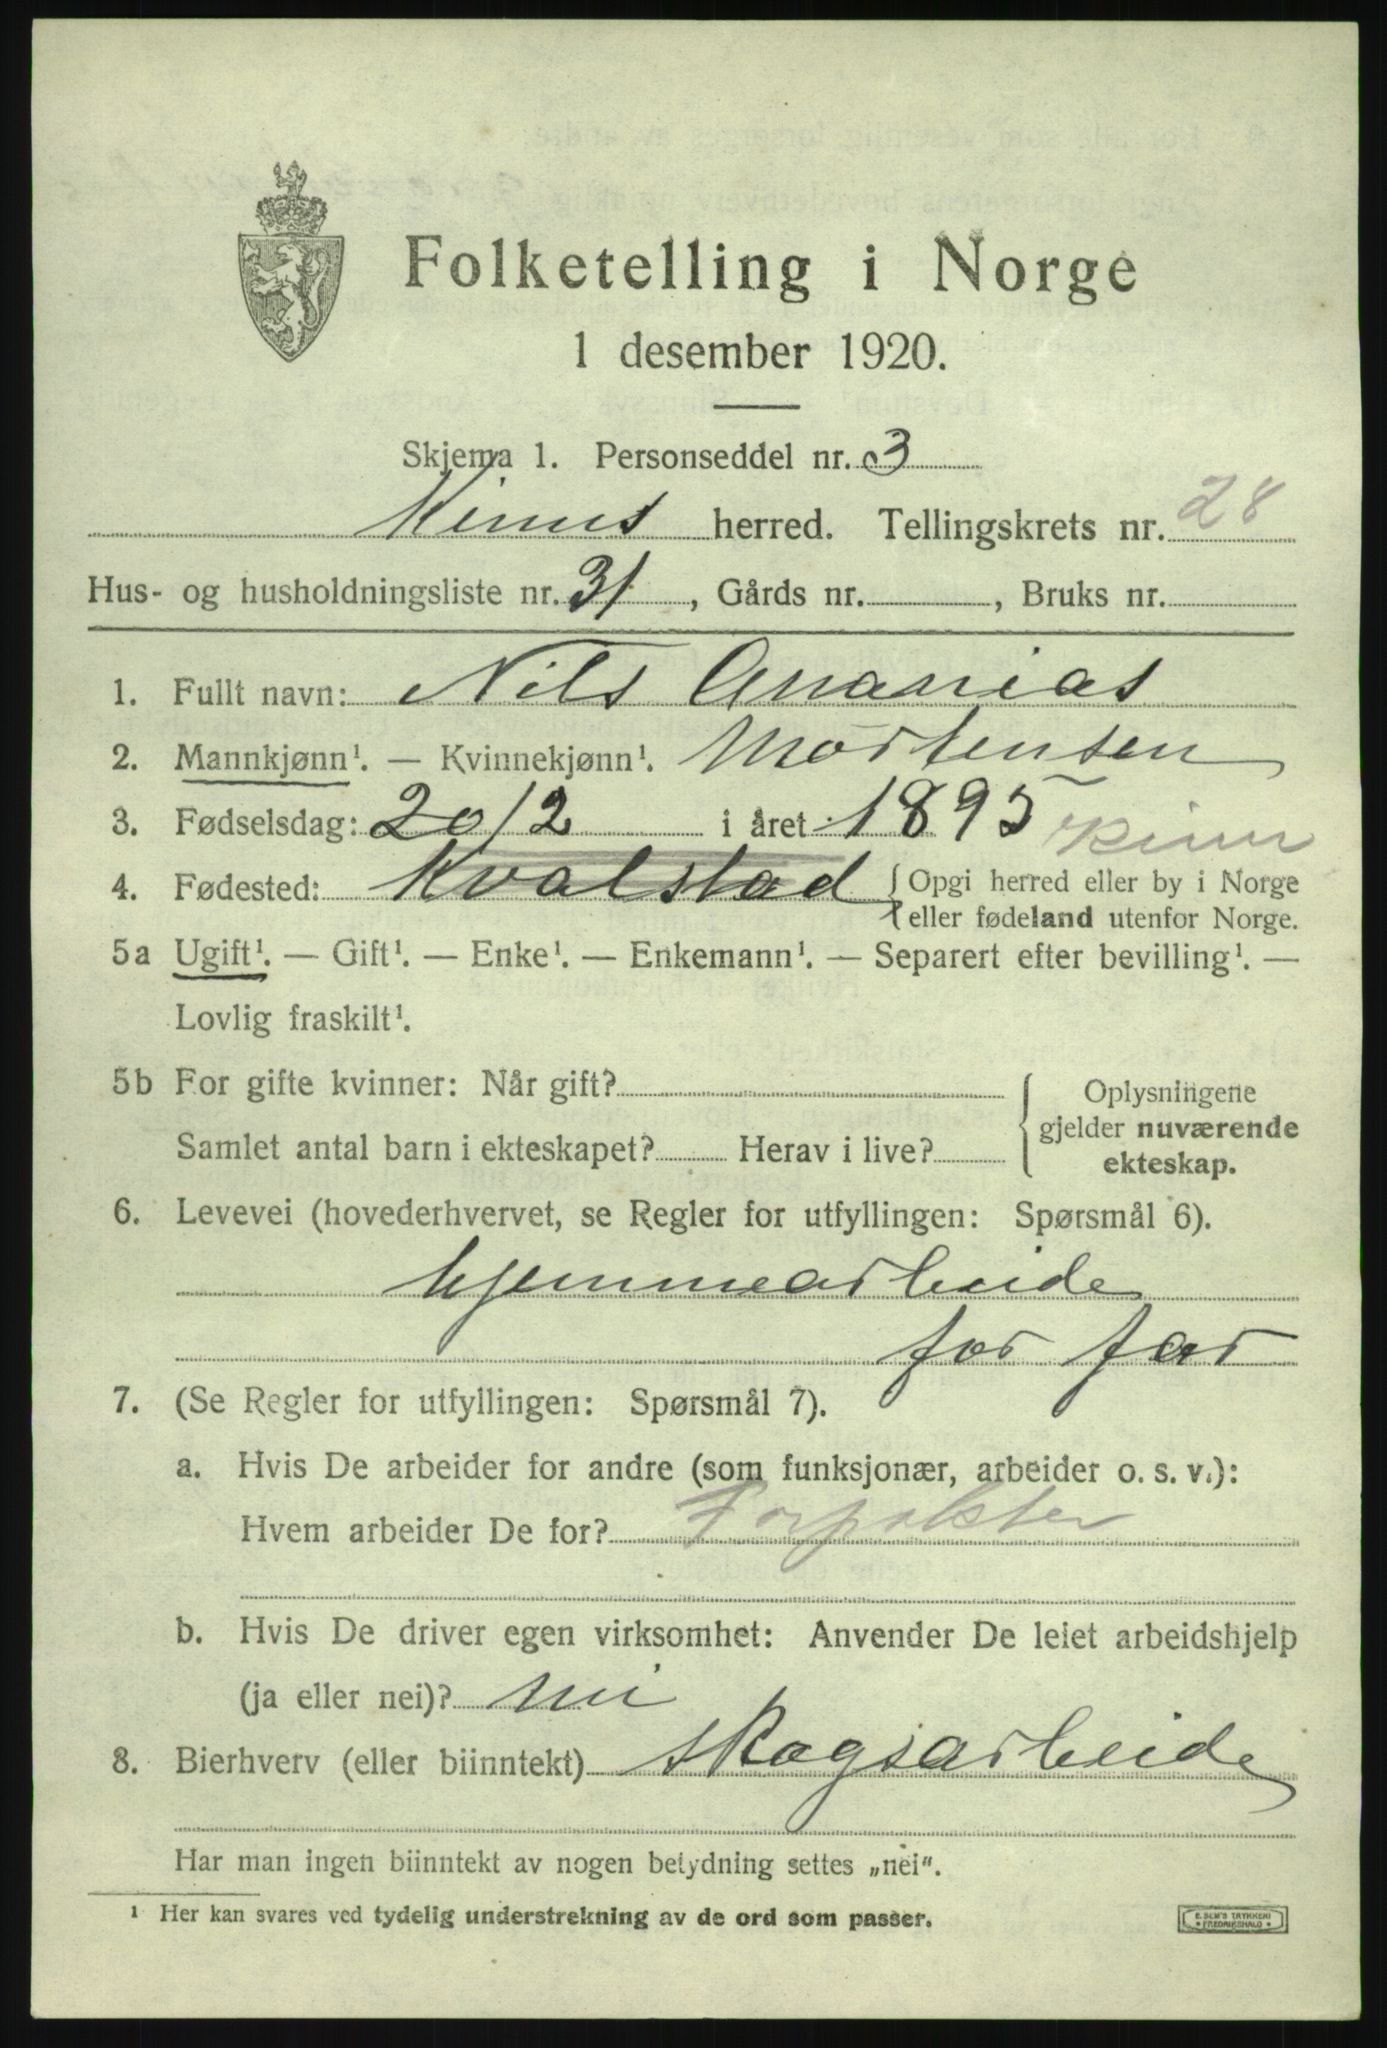 Folketelling i Norge
1 desember 1920.
Skjema 1. Personseddel nr. 3
Kinns herred. Tellingskrets nr. 28
Hus- og husholdningsliste nr. 31, Gårds nr. , Bruks nr.
1. Fullt navn: Nils Ananias
2. Mannkjønn¹. — Kvinnekjønn¹. Mortensen
3. Fødselsdag: 20/2 i året 1895 Kinn
4. Fødested: Kvalstad {Opgi herred eller by i Norge
eller fødeland utenfor Norge.
5a Ugift¹. — Gift¹. — Enke¹. — Enkemann¹. — Separert efter bevilling¹. —
Lovlig fraskilt¹.
5b For gifte kvinner: Når gift?
Samlet antal barn i ekteskapet? Herav i live?
Oplysningene
gjelder nuværende
ekteskap.
6. Levevei (hovederhvervet, se Regler for utfyllingen: Spørsmål 6).
hjemmearbeide
for far
7. (Se Regler for utfyllingen: Spørsmål 7).
a. Hvis De arbeider for andre (som funksjonær, arbeider o. s. v.):
Hvem arbeider De for? Forpakter
b. Hvis De driver egen virksomhet: Anvender De leiet arbeidshjelp
(ja eller nei)? nei
8. Bierhverv (eller biinntekt) skogsarbeide
Har man ingen biinntekt av nogen betydning settes „nei".
¹ Her kan svares ved tydelig understrekning av de ord som passer.
E. SEM'S TRYKKERI
FREDRIKSHALD